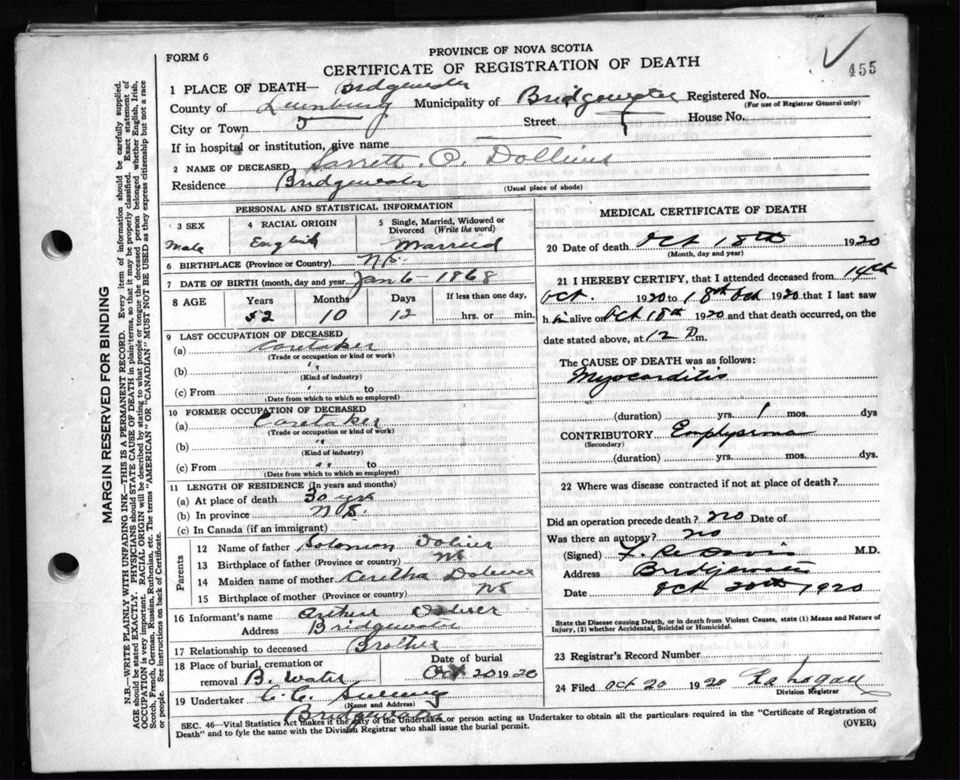 455
FORM 6
PROVINCE OF NOVA SCOTIA
CERTIFICATE OF REGISTRATION OF DEATH
1 PLACE OF DEATH— Bridgewater
County of Lunenburg Municipality of Bridgewater Registered No.
(For use of Registrar General only)
City or Town Street House No.
If in hospital or institution, give name
2 NAME OF DECEASED
Residence Bridgewater
(Usual place of abode)
PERSONAL AND STATISTICAL INFORMATION
3 SEX
Male
4 RACIAL ORIGIN
English
5 Single, Married, Widowed or
Divorced (Write the word)
Married
6 BIRTHPLACE (Province or Country) NS
7 DATE OF BIRTH (month, day and year) Jan 6 - 1868
8 AGE Years Months Days If less than one day,
52 10 12 hrs. or min.
9 LAST OCCUPATION OF DECEASED
(a) Caretaker
(Trade or occupation or kind or work)
(b) "
(Kind of industry)
(c) From " to
(Date from which to which so employed)
10 FORMER OCCUPATION OF DECEASED
(a) Caretaker
(Trade or occupation or kind of work)
(b) "
(Kind of industry)
(c) From " to
(Date from which to which so employed)
11 LENGTH OF RESIDENCE (In years and months)
(a) At place of death 30 yrs
(b) In province NS.
(c) In Canada (if an immigrant)
Parents
12 Name of father Solomon
13 Birthplace of father (Province or country) NS
14 Maiden name of mother
15 Birthplace of mother (Province or country) NS
16 Informant's name Arthur
Address Bridgewater
17 Relationship to deceased Brother
18 Place of burial, cremation or
removal B. Water
Date of burial
Oct 20 1920
19 Undertaker C. C.
(Name and Address)
Bridgewater
MEDICAL CERTIFICATE OF DEATH
20 Date of death Oct 18th 1920
(Month, day and year)
21 I HEREBY CERTIFY, that I attended deceased from 14th
Oct. 1920 to 18th Oct 1920 that I last saw
him alive on Oct 18th 1920 and that death occurred, on the
date stated above, at 12 P.m.
The CAUSE OF DEATH was as follows:
Myocarditis
(duration) yrs. 1 mos. dys
CONTRIBUTORY Emphysema
(Secondary)
(duration) yrs. mos. dys.
22 Where was disease contracted if not at place of death?
Did an operation precede death? no Date of
Was there an autopsy? no
(Signed) Davis M.D.
Address Bridgewater
Date Oct 20th 1920
State the Disease causing Death, or in death from Violent Causes, state (1) Means and Nature of
Injury, (2) whether Accidental, Suicidal or Homicidal.
23 Registrar's Record Number
24 Filed Oct 20 1920
Division Registrar
SEC. 46—Vital Statistics Act makes it the duty of the Undertaker or person acting as Undertaker to obtain all the particulars required in the "Certificate of Registration of
Death" and to fyle the same with the Division Registrar who shall issue the burial permit. (OVER)
MARGIN RESERVED FOR BINDING
N.B.—WRITE PLAINLY WITH UNFADING INK—THIS IS A PERMANENT RECORD. Every item of information should be carefully supplied.
AGE should be stated EXACTLY. PHYSICIANS should STATE CAUSE OF DEATH in plain terms, so that it may be properly classified. Exact statement of
OCCUPATION is very important. RACIAL ORIGIN will be described by stating to what people or tongue the deceased person belonged whether English, Irish,
Scotch, French, German, Russian, Ruthenian, etc. The terms "AMERICAN" OR "CANADIAN" MUST NOT BE USED as they express citizenship but not a race
or people. See instructions on back of Certificate.